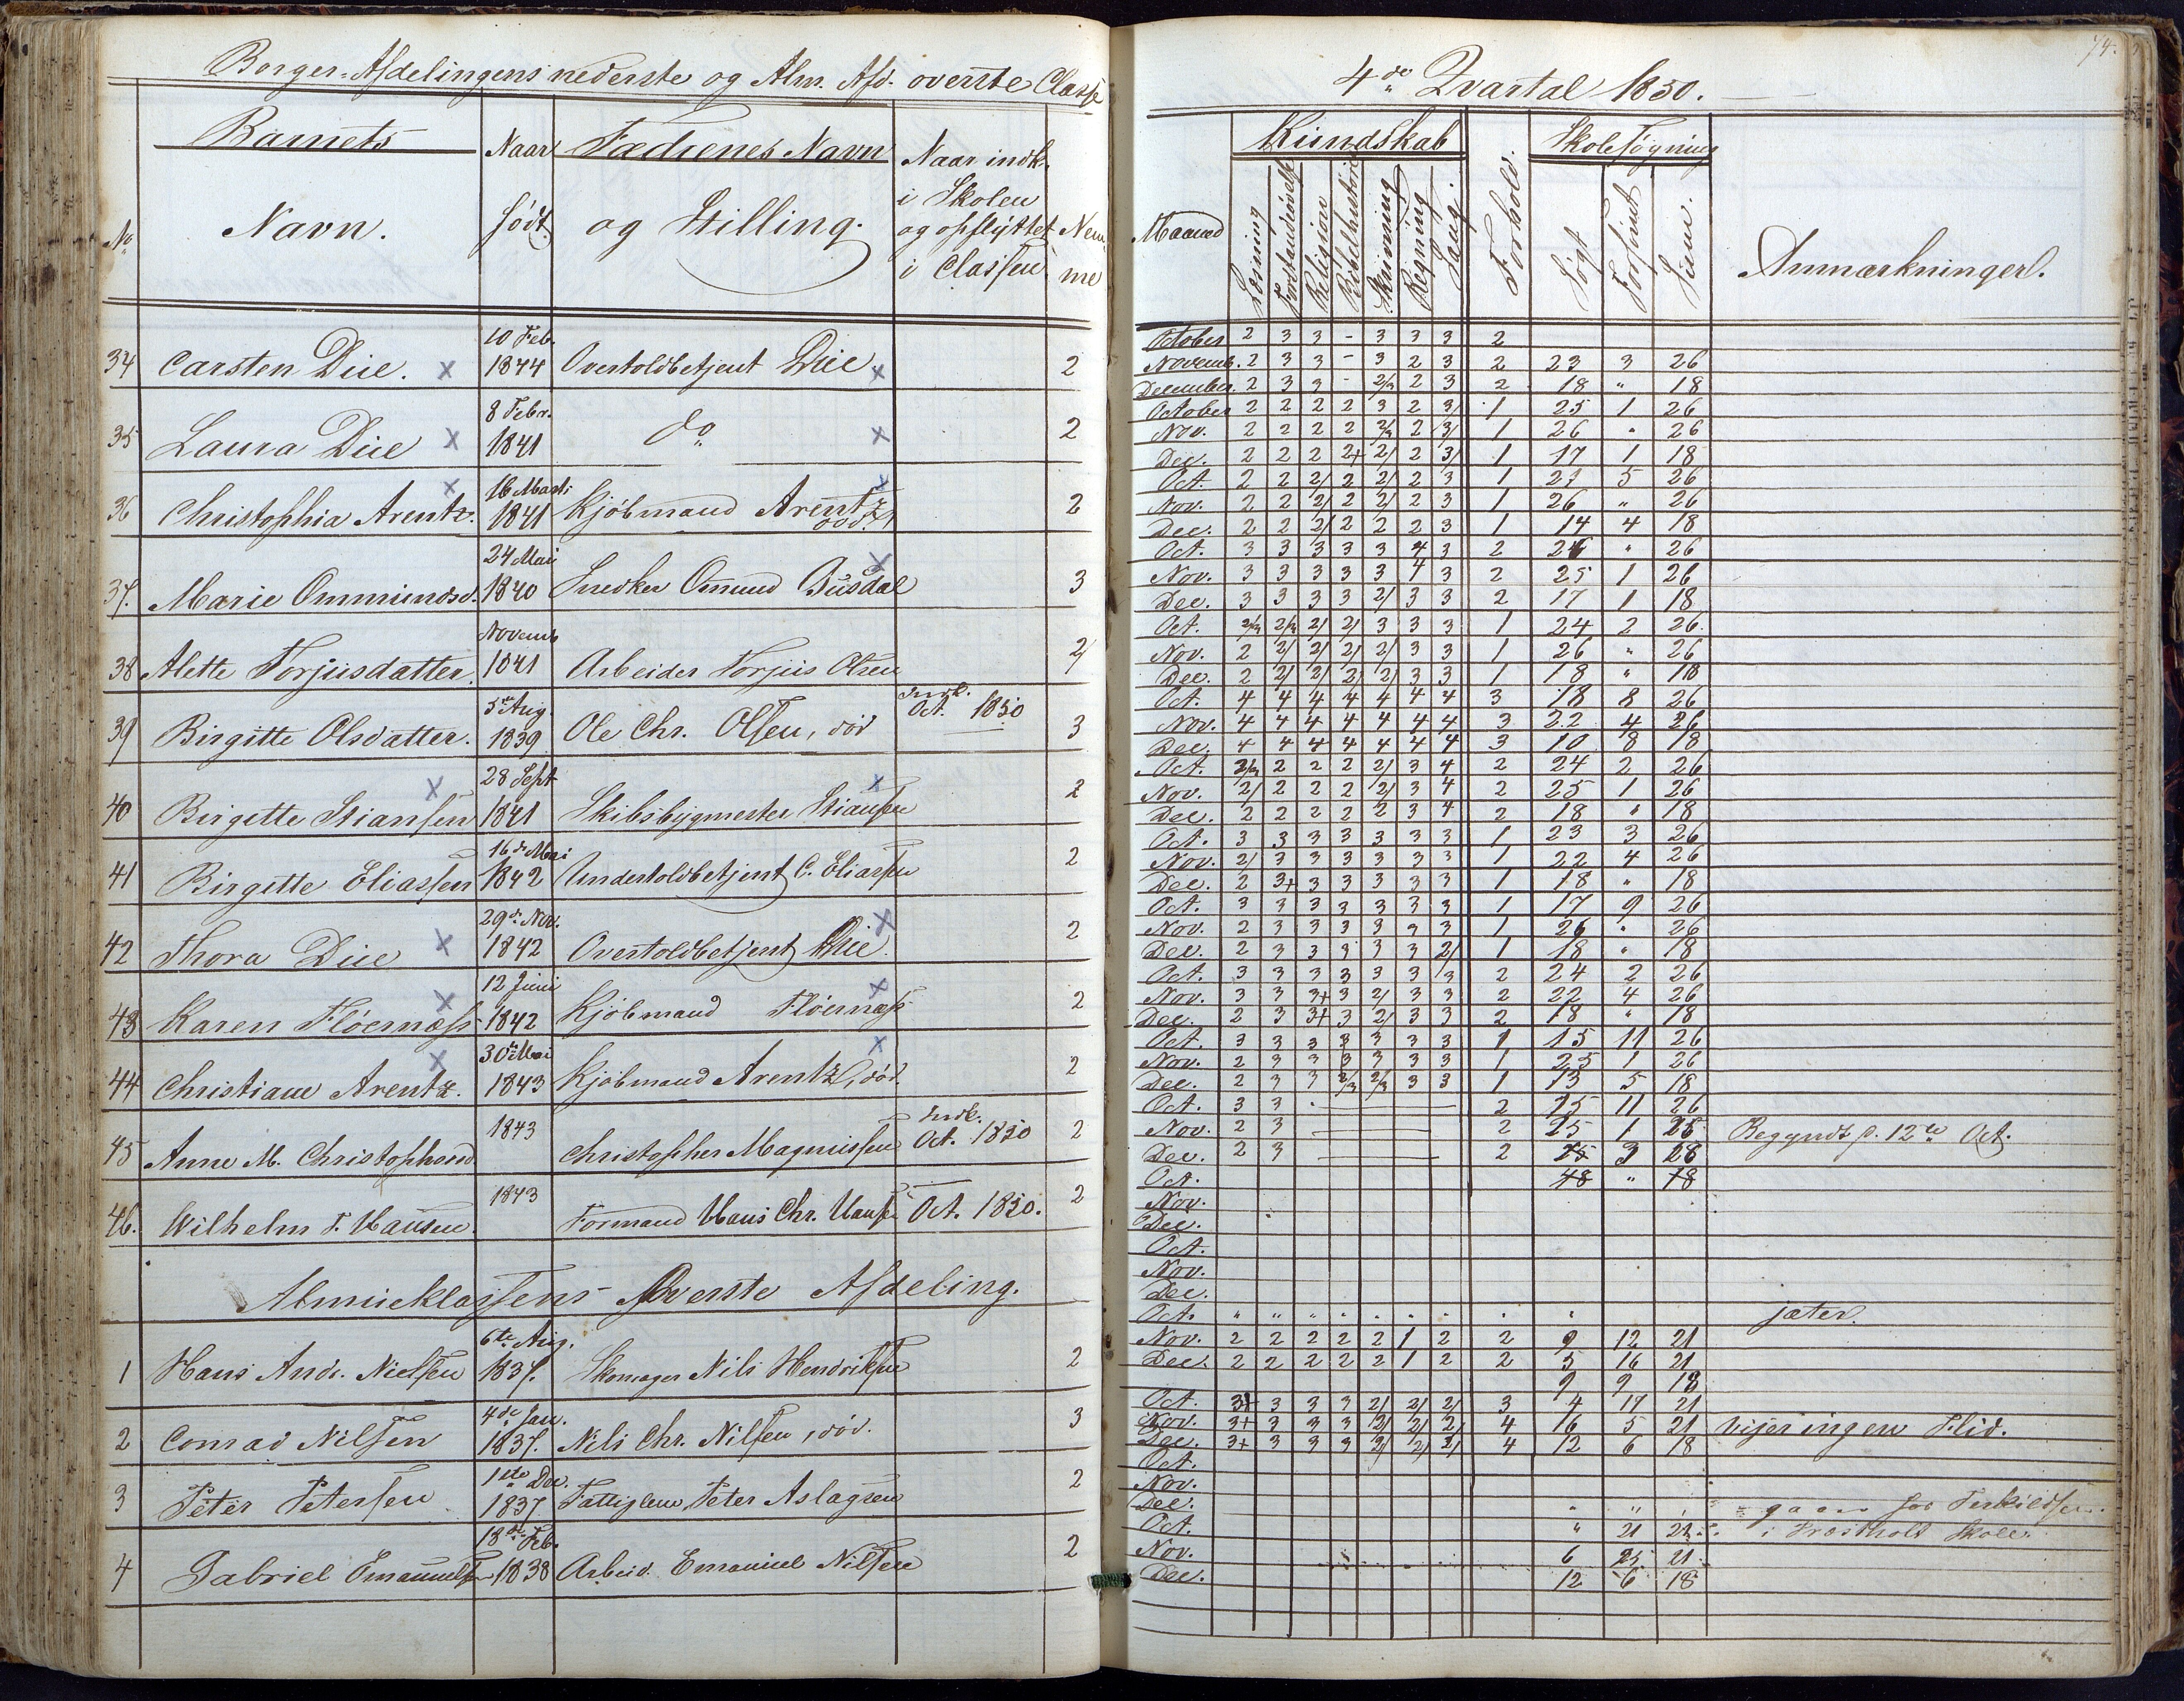 Borger-Afdelingens nederste og Alm. Afd. overste Classe
No
Barnets
Navn.
Naar
født
Fædrenes Navn
og Stilling.
Naar indk.
i Skolen
og opflyttet
i Classen
Nem-
me
34 Carsten Due. x 10 Feb. 1844 Overtoldbetjent Due x 2
35 Laura Due x 8 Febr. 1841 do x 2
36 Christophia Arentz. x 16 Marts 1841 Kjöbmand Arentz x 2
37. Marie Ommundsd. 24 Mai 1840 Snedker Omund Busdal x 3
38 Alette Torjusdatter. Novemb 1841 Arbeider Torjus Olsen 2/
39 Birgitte Olsdatter. 5te Aug. 1839 Ole Chr. Olsen, död Indk. Oct. 1850 3
40 Birgitte Stiansen x 28 Sept 1841 Skibsbygmester Stiansen x 2
41 Birgitte Eliassen 16de Mai 1842 Undertoldbetjent C. Eliassen 2
42 Thora Due x 29de Nov. 1842 Overtoldbetjent Due x 2
43 Karen Flöernæss x 12 Juni 1842 Kjöbmand Flöernæss x 2
44 Christiane Arentz. x 30te Mai 1843 Kjöbmand Arentz, död. x 2
45 Anne M. Christophersd 1843 Christopher Magnussen Indk. Oct. 1850 2
46. Wilhelm T. Hansen. 1843 Formand Hans Chr. Hansen Oct. 1850. 2
Almueklassens Øverste Afdeling.
1 Hans Andr. Nielsen 6te Aug. 1837. Skomager Nils Hendriksen 2
2 Conrad Nilsen 4de Jan. 1837. Nils Chr. Nilsen, död. 3
3 Peter Petersen 1ste Dec. 1837 Fattiglem Peter Aslagsen 2
4 Gabriel Emanuelsen 18de Feb. 1838 Arbeid. Emanuel Nilsen 2
74.
4de Qvartal 1850.
Maaned
Kundskab
Læsning
Forstandsøvelse
Religion
Bibelhistorie
Skrivning
Regning
Sang.
Forhold.
Skolesøgning
Søgt
Forsømt
Sum.
Anmærkninger.
October 2 3 3 - 3 3 3 2
Novemb. 2 3 3 - 3 2 3 2 23 3 26
December 2 3 3 - 2/3 2 3 2 18 " 18
October 2 2 2 2 3 2 3/ 1 25 1 26
Nov. 2 2 2 2 2/3 2 3/ 1 26 " 26
Dec. 2 2 2 2+ 2/ 2 3/ 1 17 1 18
Oct. 2 2 2/ 2 2/ 2 3 1 21 5 26
Nov. 2 2 2/ 2 2/ 2 3 1 26 " 26
Dec. 2 2 2/ 2 2 2 3 1 14 4 18
Oct. 3 3 3 3 3 4 3 2 26 " 26
Nov. 3 3 3 3 3 4 3 2 25 1 26
Dec. 3 3 3 3 2/ 3 3 2 17 1 18
Oct. 2/3 2/3 2/ 2/ 3 3 3 1 24 2 26.
Nov. 2 2/ 2/ 2/ 2/ 3 3 1 26 " 26
Dec. 2 2/ 2/ 2/ 2/ 3 3 1 18 " 18
Oct. 4 4 4 4 4 4 4 3 18 8 26
Nov. 4 4 4 4 4 4 4 3 22 4 26
Dec. 4 4 4 4 4 4 4 3 10 8 18
Oct. 2/3 2 2 2 2/ 3 4 2 24 2 26
Nov. 2/ 2 2 2 2/ 3 4 2 25 1 26
Dec. 2 2 2 2 2 3 4 2 18 " 18
Oct. 3 3 3 3 3 3 3 1 23 3 26
Nov. 2/ 3 3 3 3 3 3 1 22 4 26
Dec. 2 3+ 3 3 3 3 3 1 18 " 18
Oct. 3 3 3 3 3 3 3 1 17 9 26
Nov. 2 3 3 3 3 3 3 1 26 " 26
Dec. 2 3 3 3 3 3 2/ 1 18 " 18
Oct. 3 3 3 3 3 3 3 2 24 2 26
Nov. 3 3 3+ 3 2/ 3 3 2 22 4 26
Dec. 2 3 3+ 3 2/ 3 3 2 18 " 18
Oct. 3 3 3 3 3 3 3 1 15 11 26
Nov. 2 3 3 3 3 3 3 1 25 1 26
Dec. 2 3 3 2/3 2/3 3 3 1 13 5 18
Oct. 3 3 2 15 11 26
Nov. 2 3 2 25 1 26 Begyndt d. 12te Oct.
Dec. 2 3 2 3
Oct. "
Nov.
Dec.
Oct.
Nov.
Dec.
Oct. " " " " " " " " " jæter.
Nov. 2 2 2 2 2 1 2 2 9 12 21
Dec. 2 2 2 2 2 1 2 2 5 16 21
9 9 18
Oct. 3+ 3 3 3 2/ 2/ 2/ 3 4 17 21
Nov. 3+ 3 3 3 2/ 2/ 2/ 4 16 5 21 viser ingen Flid.
Dec. 3+ 3 3 3 2/ 2/ 2/ 4 12 6 18
Oct.
Nov.
Dec. " " gaar hos Terkildsen
Oct. " 21 21 i Skole.
Nov. 6 21
Dec. 12 6 18